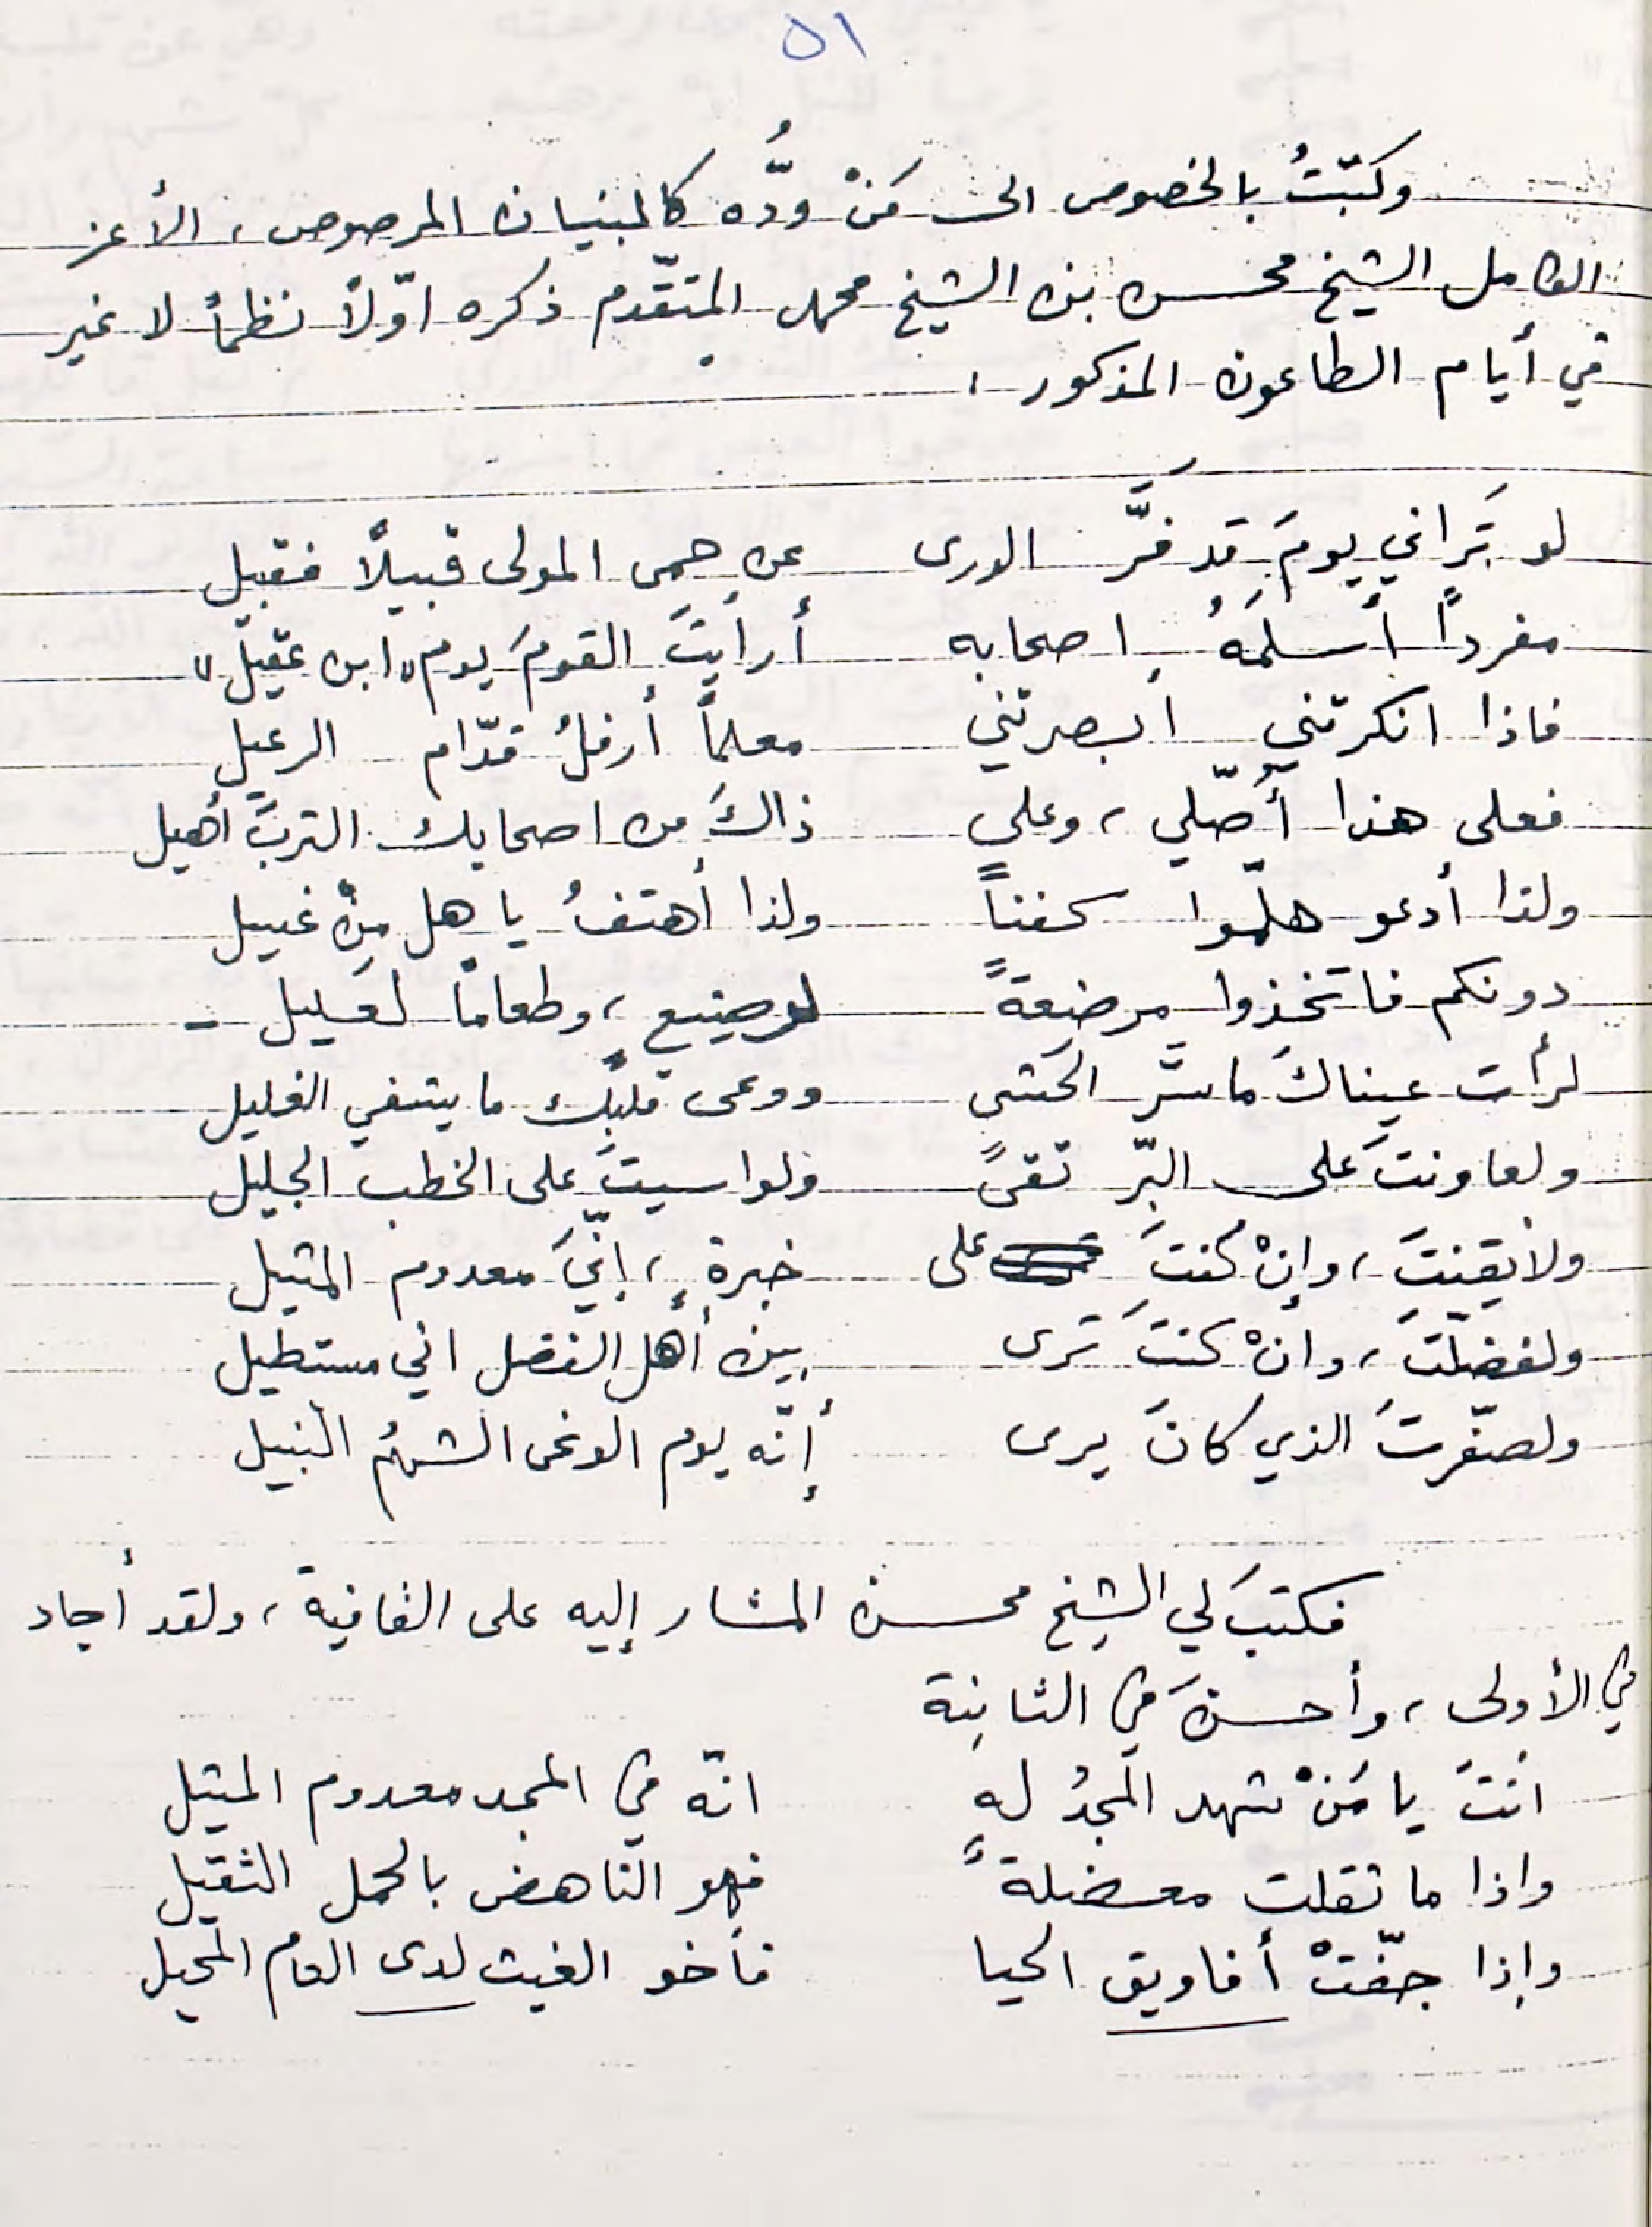 ٥١
وكتبتُ بالخصوص الى مَنْ وُدُّه كالبنيان المرصوص، الأعز
الكامل الشيخ محسن بن الشيخ محمد المتقدّم ذكره اوّلاً نظماً لا غير
في أيام الطاعون المذكور،
لو تَراني يومَ قد فَرَّ الورى عن حِمى المولى قبيلاً فقبيل
مفرداً أسلمَهُ اصحابه أرأيتَ القومَ يوم "ابن عقيل"
فاذا انكرتني ابصرتني معلماً أرفلُ قدّام الرعيل
فعلى هذا أُصلّي، وعلى ذاكَ من اصحابك التربَ أُهيل
ولذا أدعو هلمّوا كفناً ولذا أهتفُ يا هل مِنْ غسيل
دونكم فاتخذوا مرضعةً لرضيعٍ، وطعاماً لعَليل -
لرأت عيناكَ ما سَرَّ الحَشى ووعى قلبُك ما يشفي الغليل
ولعاونتَ على البرّ تقىً ولواسيتَ على الخطب الجليل
ولأيقنتَ، وإنْ كُنتَ على خبرةٍ، إنّيَ معدوم المثيل
ولفضّلتَ، وانْ كنتَ تَرى بين أهل الفضل اني مستطيل
ولصغّرتَ الذي كانَ يرى أنّه يوم الوغى الشهمُ النبيل
فكتبَ لي الشيخ محسن المشار إليه على القافية، ولقد أجاد
في الأولى، وأحسنَ في الثانية
انتَ يا مَنْ شهد المجدُ لهِ انّه في المجد معدوم المثيل
واذا ما ثقلت معضلةً فهو الناهض بالحمل الثقيل
وإذا جفّتْ أفاويق الحيا فأخو الغيث لدى العام المحيل